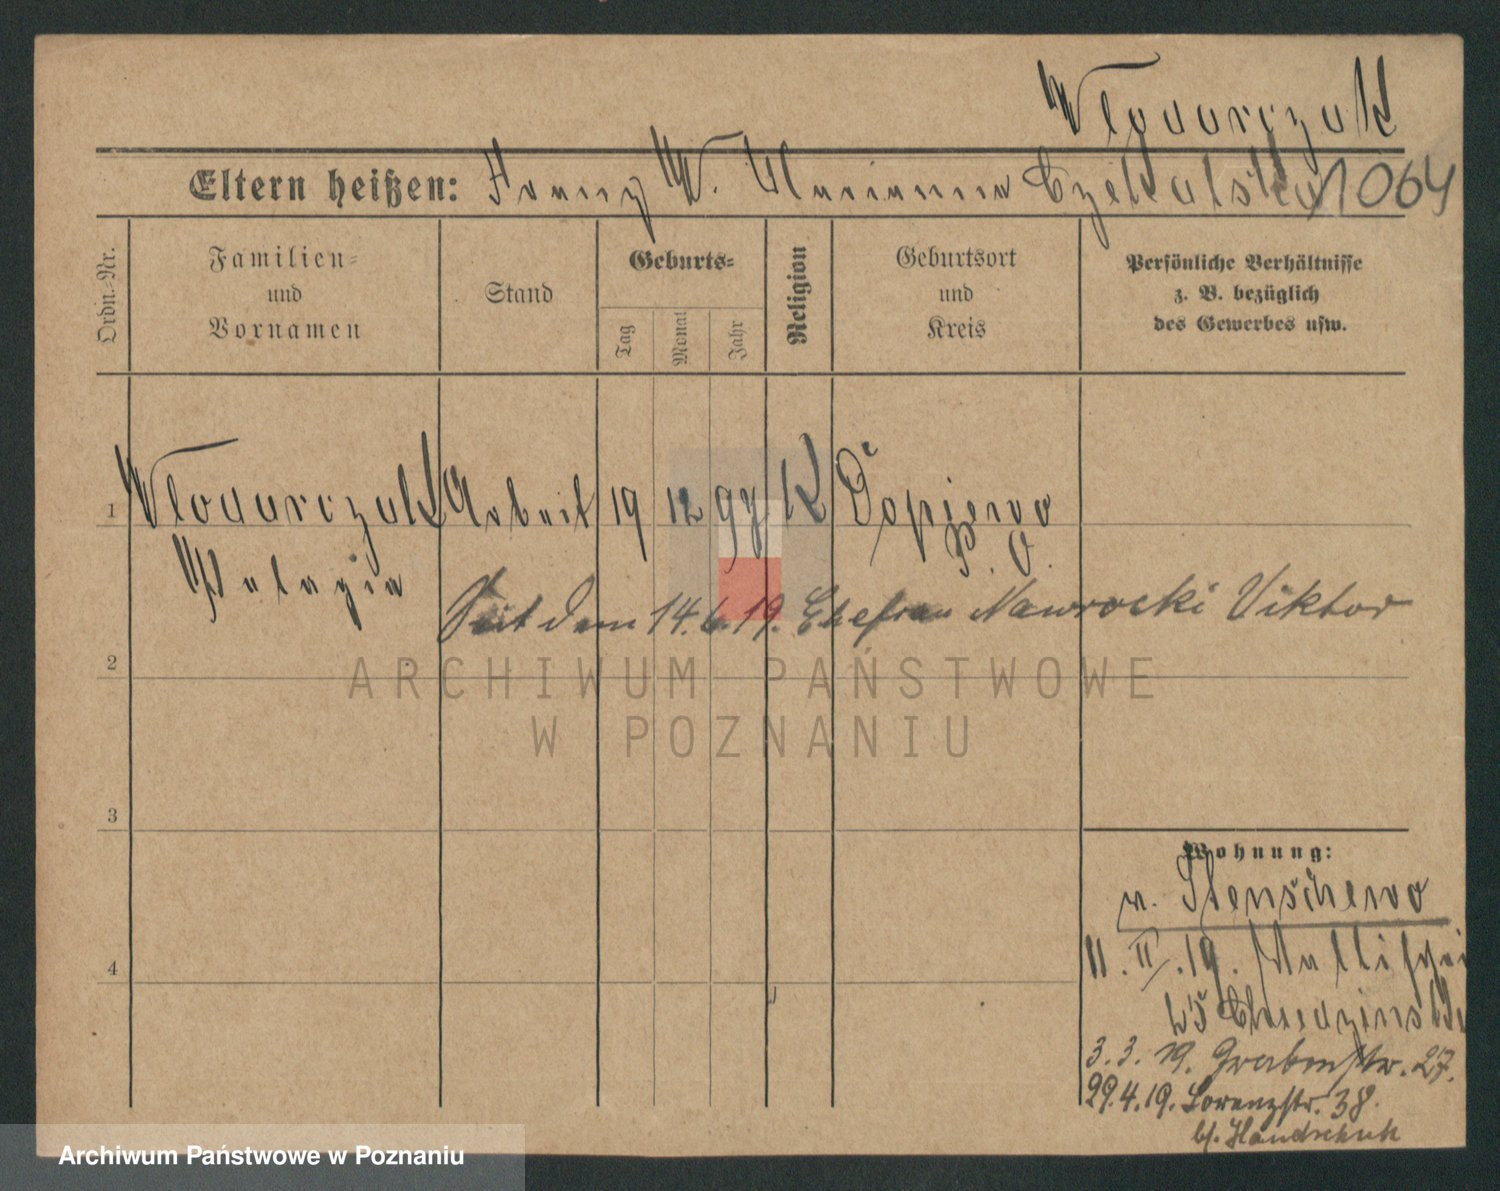 Wlodarczak
Eltern heißen: Franz W. Marianna Czekalska 1064
Ordn.-Nr.
Familien-
und
Vornamen
Stand
Geburts-
Tag
Monat
Jahr
Religion
Geburtsort
und
Kreis
Persönliche Verhältnisse
z. B. bezüglich
des Gewerbes usw.
1 Wlodarczak Arbeit 19 12 97 K Dopiewo
P. O.
Pelagia
Seit dem 14.6.19. Ehefrau Nawrocki Viktor
2
ARCHIWUM PAŃSTWOWE
W POZNANIU
3
Wohnung:
v. Stenschewo
4
11.II.19. Wallischei
b/
3.3.19. Grabenstr. 27.
29.4.19. Lorenzstr. 38.
b/. Handschuh
Archiwum Państwowe w Poznaniu